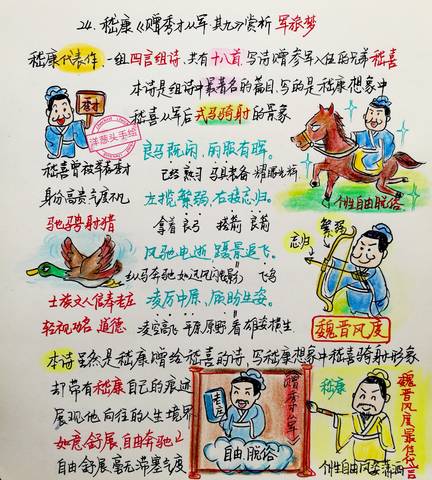 24. 嵇康《赠秀才从军 其九》赏析 军旅梦
嵇康代表作,一组四言组诗,共有十八首,写诗赠参军入伍的兄弟嵇喜
本诗是组诗中最著名的篇目,写的是嵇康想象中
嵇喜从军后戎马骑射的景象
秀才
洋葱头手绘
嵇喜曾被举秀才
身份高贵气度不凡
驰骋骑射猎
良马既闲,丽服有晖。
已经熟习 马具齐备 耀眼光辉
左揽繁弱,右接忘归。
拿着良弓 搭箭 良箭
风驰电逝,蹑景追飞。
纵马奔驰如迅风闪影 飞鸟
凌厉中原,顾盼生姿。
凌空高飞 平原原野 看 雄姿横生
个性自由脱俗
忘归
繁弱
魏晋风度
士族文人信奉老庄
轻视功名 道德
本诗虽然是嵇康赠给嵇喜的诗,写嵇康想象中嵇喜骑射形象
却带有嵇康自己的痕迹
展现他向往的人生境界
如意,舒展,自由奔驰
自由舒展毫无滞塞气度
老庄
赠秀才从军
自由,脱俗
嵇康
个性自由风姿潇洒
魏晋风度最佳代言